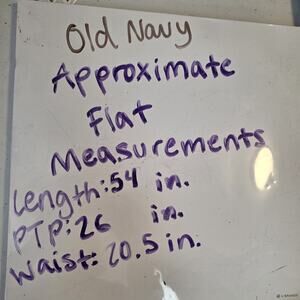 Old Navy
Approximate
Flat
Measurements
Length: 54 in.
PTP: 26 in.
Waist: 20.5 in.